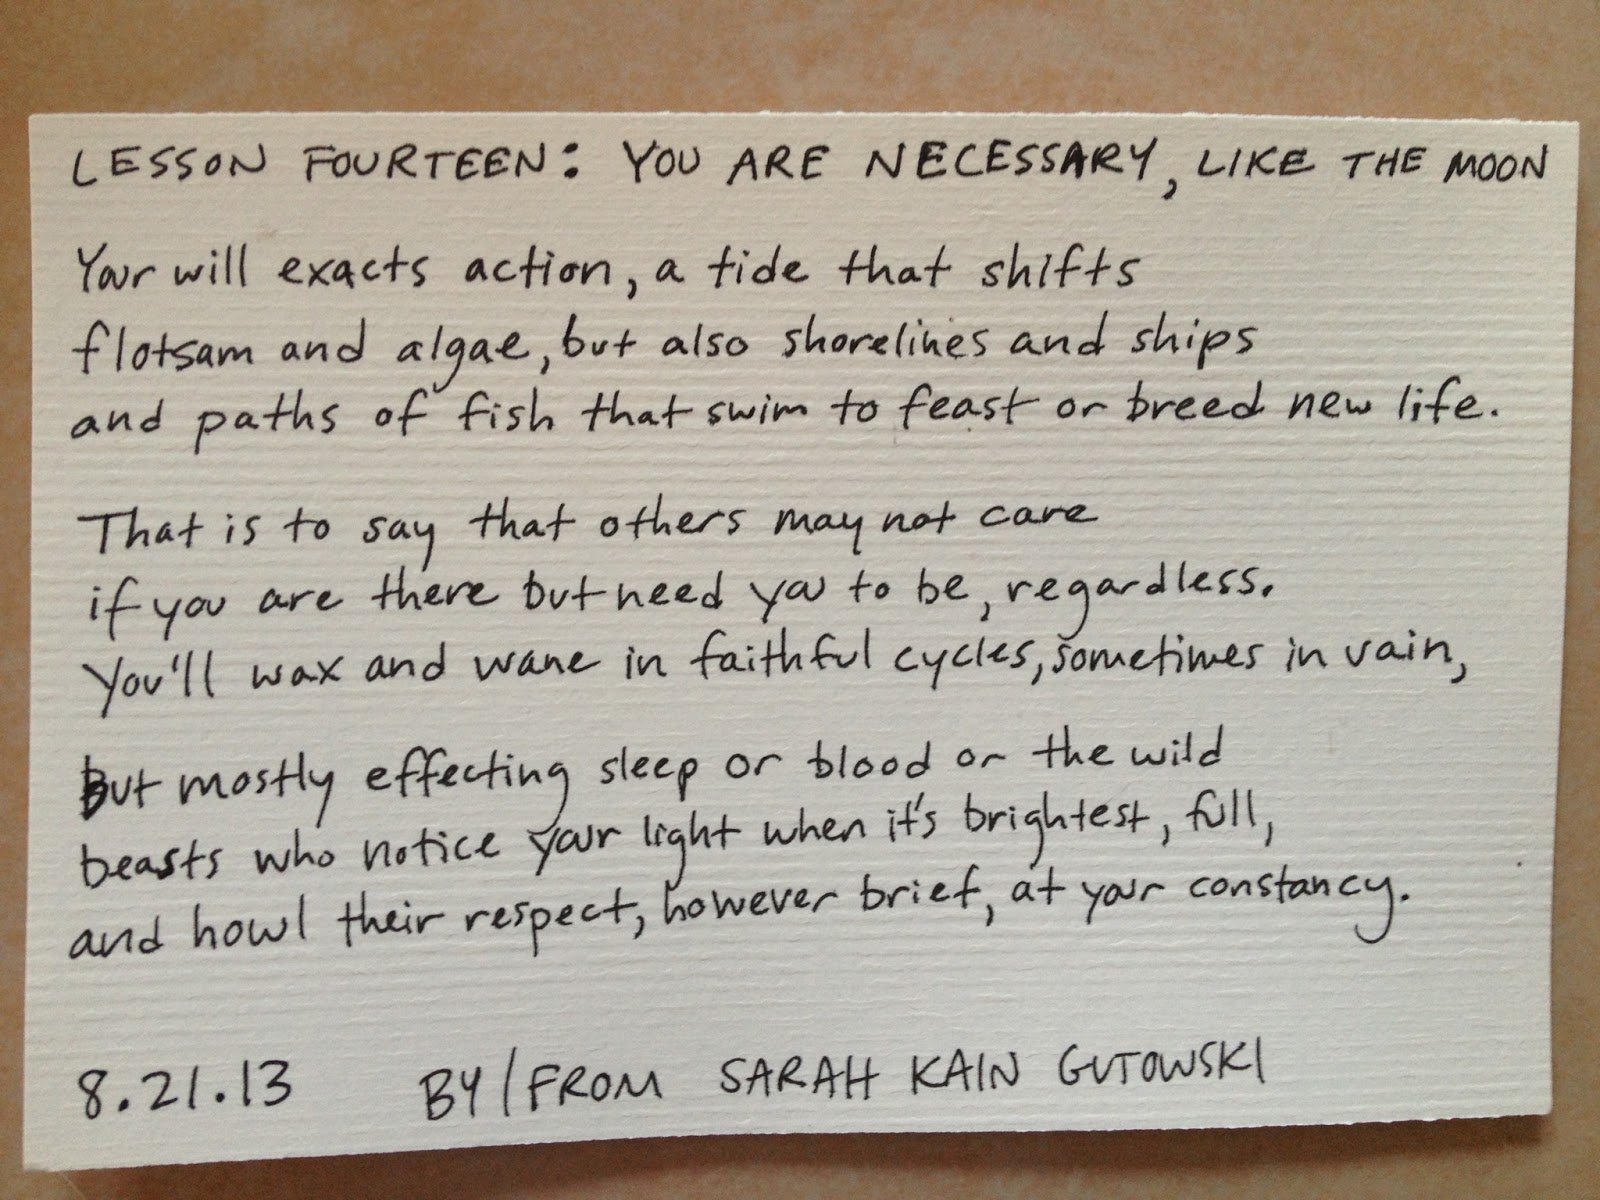 LESSON FOURTEEN: YOU ARE NECESSARY, LIKE THE MOON
Your will exacts action, a tide that shifts
flotsam and algae, but also shorelines and ships
and paths of fish that swim to feast or breed new life.
That is to say that others may not care
if you are there but need you to be, regardless.
You'll wax and wane in faithful cycles, sometimes in vain,
But mostly effecting sleep or blood or the wild
beasts who notice your light when it's brightest, full,
and howl their respect, however brief, at your constancy.
8.21.13 BY/FROM SARAH KAIN GUTOWSKI